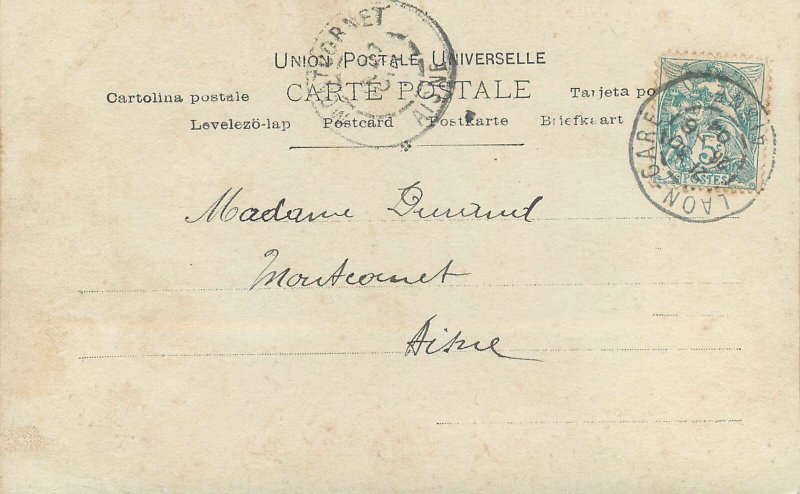 UNION POSTALE UNIVERSELLE
CARTE POSTALE
Cartolina postale
Tarjeta po
Levelező-lap Postcard Postkarte Briefkaart
MONTCORNET
AISNE
LAON GARE
AISNE
5
POSTES
Madame Durand
Montcornet
Aisne